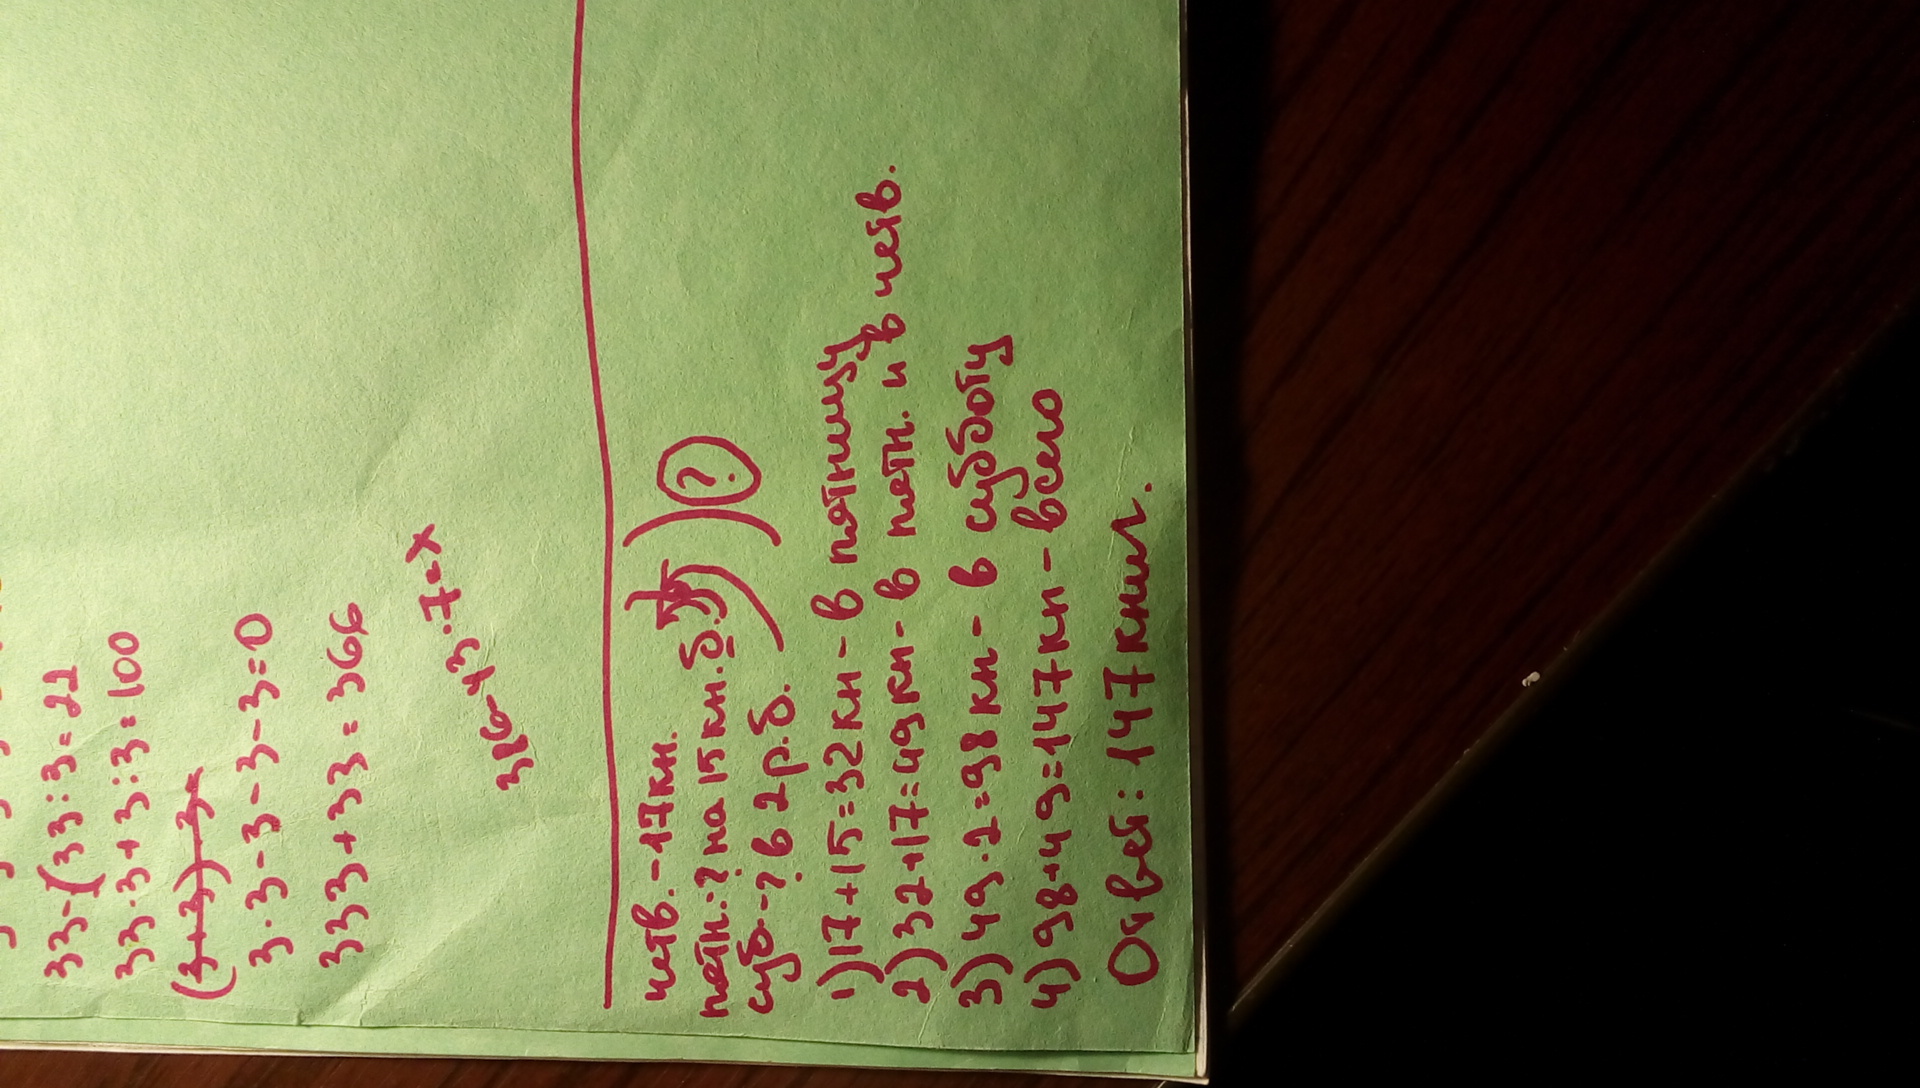 33-(33:3=22
33·3+3:3=100
(3+3)-3
3·3-3-3-3=0
333+33=366
316-43·7=x
четв.-17кн.
пятн.-? на 15 кн. б.
суб.-? в 2 р. б.
?
1) 17+15=32 кн - в пятницу
2) 32+17=49 кн - в пятн. и в четв.
3) 49·2=98 кн - в субботу
4) 98+49=147 кн - всего
Ответ: 147 книг.